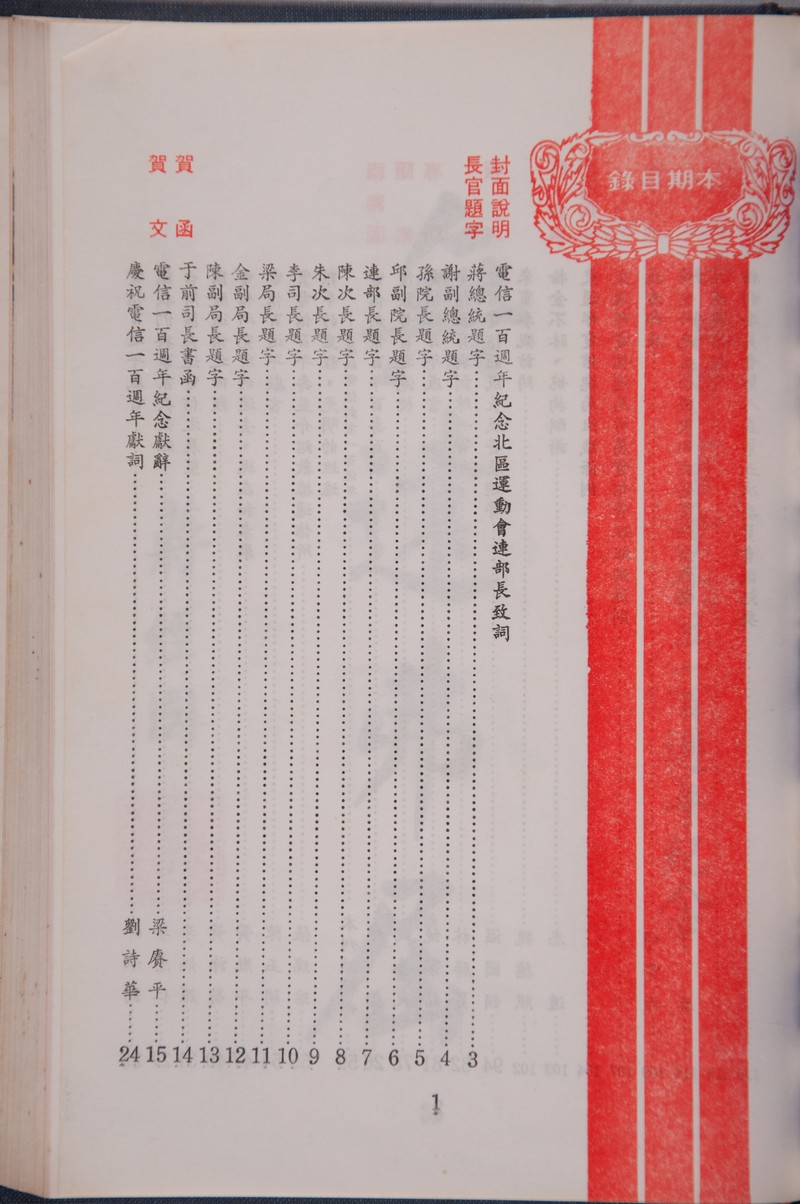 本期目錄
封面說明 電信一百週年紀念北區運動會連部長致詞
長官題字 蔣總統題字…………3
謝副總統題字…………4
孫院長題字…………5
邱副院長題字…………6
連部長題字…………7
陳次長題字…………8
朱次長題字…………9
李司長題字…………10
梁局長題字…………11
金副局長題字…………12
陳副局長題字…………13
賀函 于前司長書函…………14
賀文 電信一百週年紀念獻辭…………梁賡平……15
慶祝電信一百週年獻詞…………劉詩華……24
1